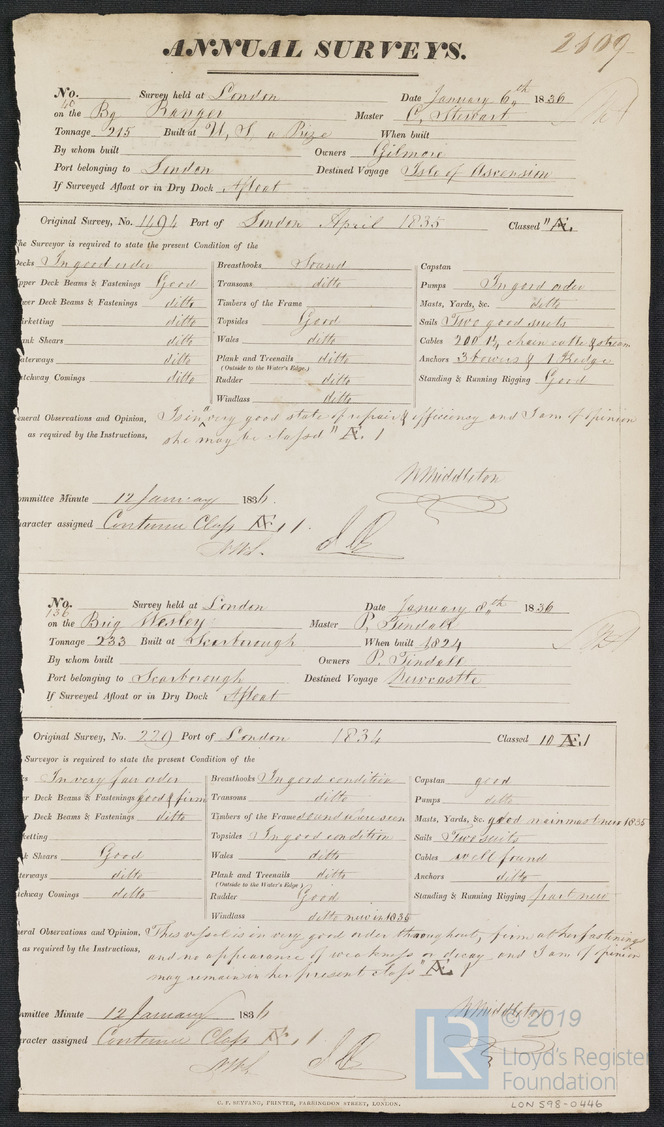 2109
ANNUAL SURVEYS.
No. 40 Survey held at London Date January 6th 1836
on the Bg Ranger Master C. Stewart
Tonnage 215 Built at U. S. a Prize When built
By whom built Owners Gilmore
Port belonging to London Destined Voyage Isle of Ascension
If Surveyed Afloat or in Dry Dock Afloat
Original Survey, No. 1494 Port of London April 1835 Classed "Æ1
he Surveyor is required to state the present Condition of the
Decks In good order
pper Deck Beams & Fastenings Good
wer Deck Beams & Fastenings ditto
irketting ditto
nk Shears ditto
aterways ditto
tchway Comings ditto
Breasthooks Sound
Transoms ditto
Timbers of the Frame
Topsides Good
Wales ditto
Plank and Treenails ditto
(Outside to the Water's Edge.)
Rudder ditto
Windlass ditto
Capstan
Pumps In good order
Masts, Yards, &c. ditto
Sails Two good suits
Cables 200 1¼ chain cable & stream
Anchors 3 bowers & 1 Kedge
Standing & Running Rigging Good
eneral Observations and Opinion, Is in very good state of repair & efficiency and I am of opinion
as required by the Instructions, she may be classed "Æ 1
W Middleton
ommittee Minute 12 January 1836.
aracter assigned Continue Class Æ 1.
No. 136 Survey held at London Date January 8th 1836
on the Brig Wesley Master P. Tindall
Tonnage 233 Built at Scarborough When built 1824
By whom built Owners P. Tindall
Port belonging to Scarborough Destined Voyage Newcastle
If Surveyed Afloat or in Dry Dock Afloat
Original Survey, No. 229 Port of London 1834 Classed 10 Æ1
Surveyor is required to state the present Condition of the
s In very fair order
r Deck Beams & Fastenings good & firm
r Deck Beams & Fastenings ditto
ketting
k Shears Good
erways ditto
chway Comings ditto
Breasthooks In good condition
Transoms ditto
Timbers of the Frame sound where seen
Topsides In good condition
Wales ditto
Plank and Treenails ditto
(Outside to the Water's Edge)
Rudder Good
Windlass ditto new in 1835
Capstan good
Pumps ditto
Masts, Yards, &c. good mainmast new 1835
Sails Two suits
Cables well found
Anchors ditto
Standing & Running Rigging part new
eral Observations and Opinion, This vessel is in very good order throughout, firm at her fastenings
as required by the Instructions, and no appearance of weakness or decay and I am of opinion
may remain in her present class "Æ 1
W Middleton
mmittee Minute 12 January 1836
racter assigned Continue Class Æ 1
C. F. SEYFANG, PRINTER, FARRINGDON STREET, LONDON.
LR
© 2019
Lloyd's Register
Foundation
LON 598-0446